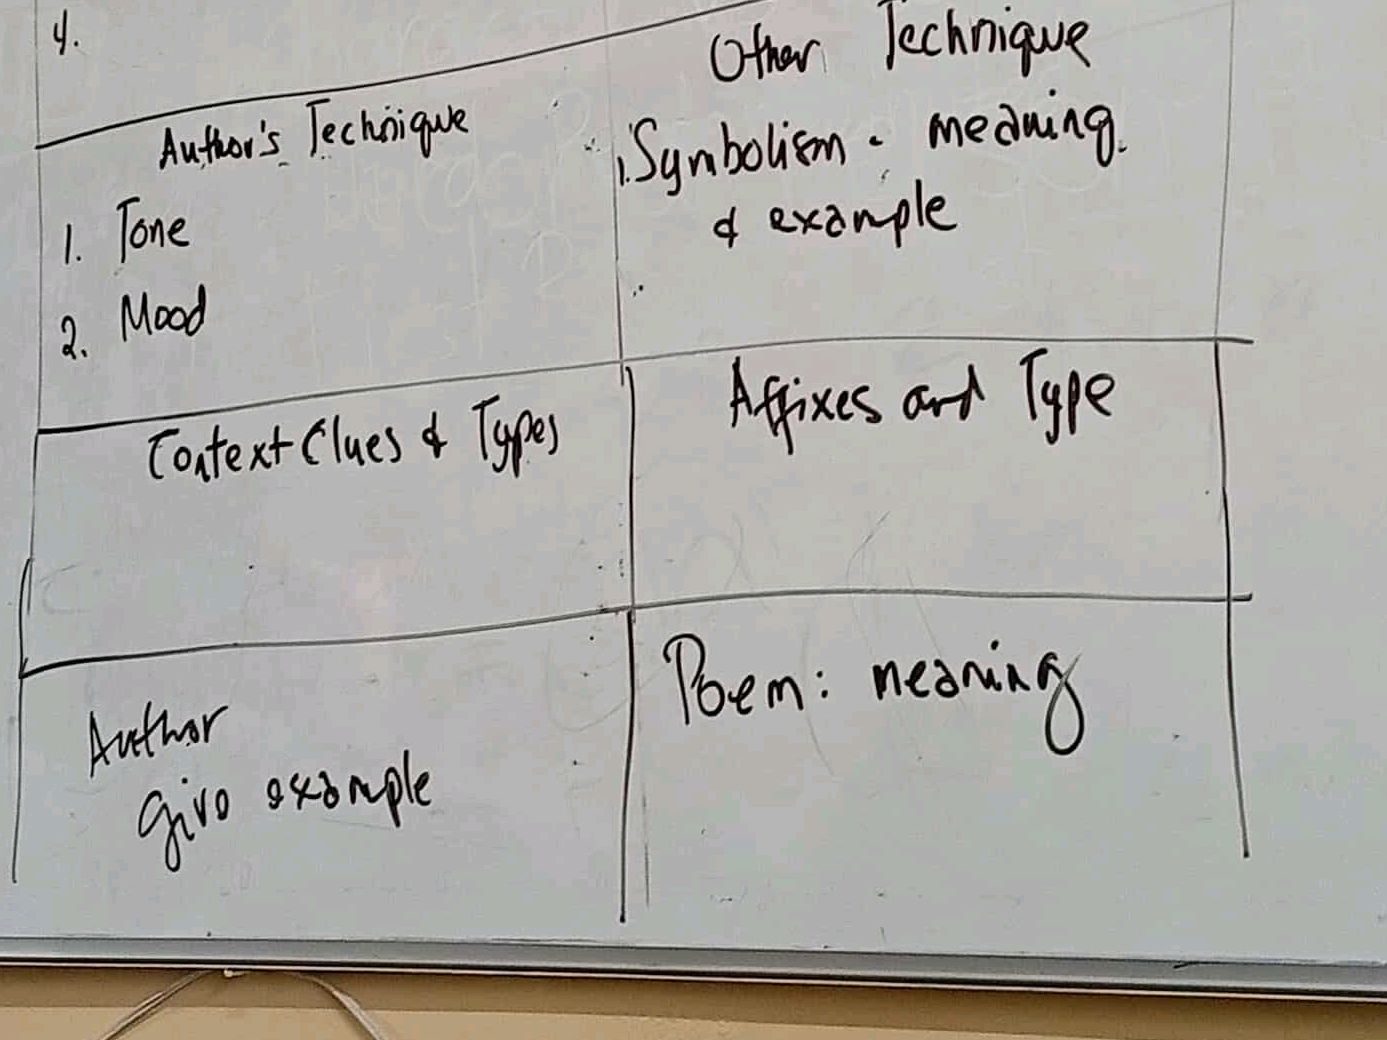 4.
Author's Technique
1. Tone
2. Mood
Other Technique
1. Symbolism - meaning
& example
Context Clues & Types
Affixes and Type
Author
give example
Poem: meaning